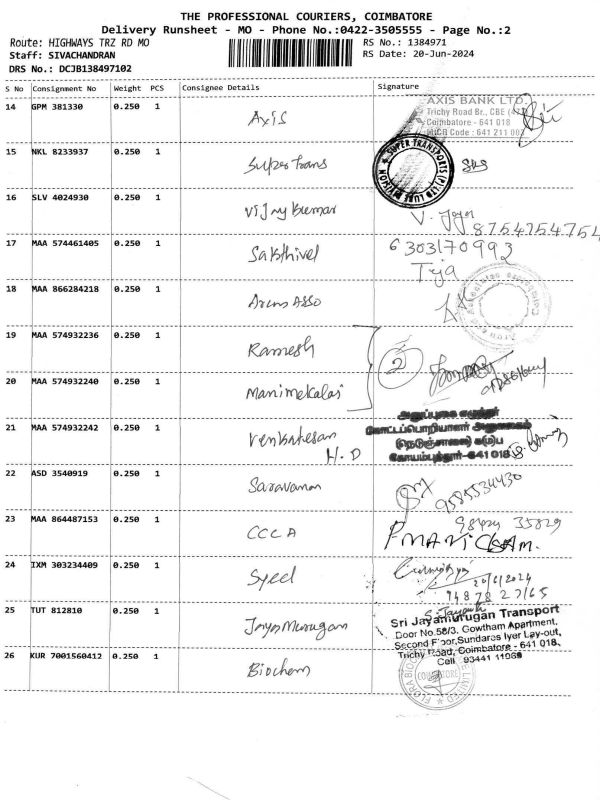 THE PROFESSIONAL COURIERS, COIMBATORE
Delivery Runsheet - MO - Phone No.:0422-3505555 - Page No.:2
Route: HIGHWAYS TRZ RD MO
RS No.: 1384971
Staff: SIVACHANDRAN
RS Date: 20-Jun-2024
DRS No.: DCJB138497102
S No Consignment No Weight PCS Consignee Details Signature
14 GPM 381330 0.250 1 Axis
AXIS BANK LTD.
Trichy Road Br., CBE
Coimbatore - 641 018
MICR Code : 641 211 003
15 NKL 8233937 0.250 1 Super Trans
SUPER TRANSPORTS (P) LTD
16 SLV 4024930 0.250 1 Vijaykumar
8754754754
17 MAA 574461405 0.250 1 Sakthivel
6303170993
Teja
18 MAA 866284218 0.250 1 Arun Asso
19 MAA 574932236 0.250 1 Ramesh
2
20 MAA 574932240 0.250 1 Manimekalai
21 MAA 574932242 0.250 1 Venkatesan
H.D
அலுவலகம்
(நெடுஞ்சாலை) க(ம)ப
கோயம்புத்தூர்-641 018
22 ASD 3540919 0.250 1 Saravanan
9585534430
23 MAA 864487153 0.250 1 CCCA
98424 35829
P. MANICKAM.
24 IXM 303234409 0.250 1 Syed
20/6/2024
94878 27165
25 TUT 812810 0.250 1 Jayamurugan
Sri Jayamurugan Transport
Door No.58/3, Gowtham Apartment,
Second Floor,Sundaras Iyer Lay-out,
Trichy Road, Coimbatore - 641 018.
Cell : 93441 11068
26 KUR 7001560412 0.250 1 Biochem
COIMBATORE